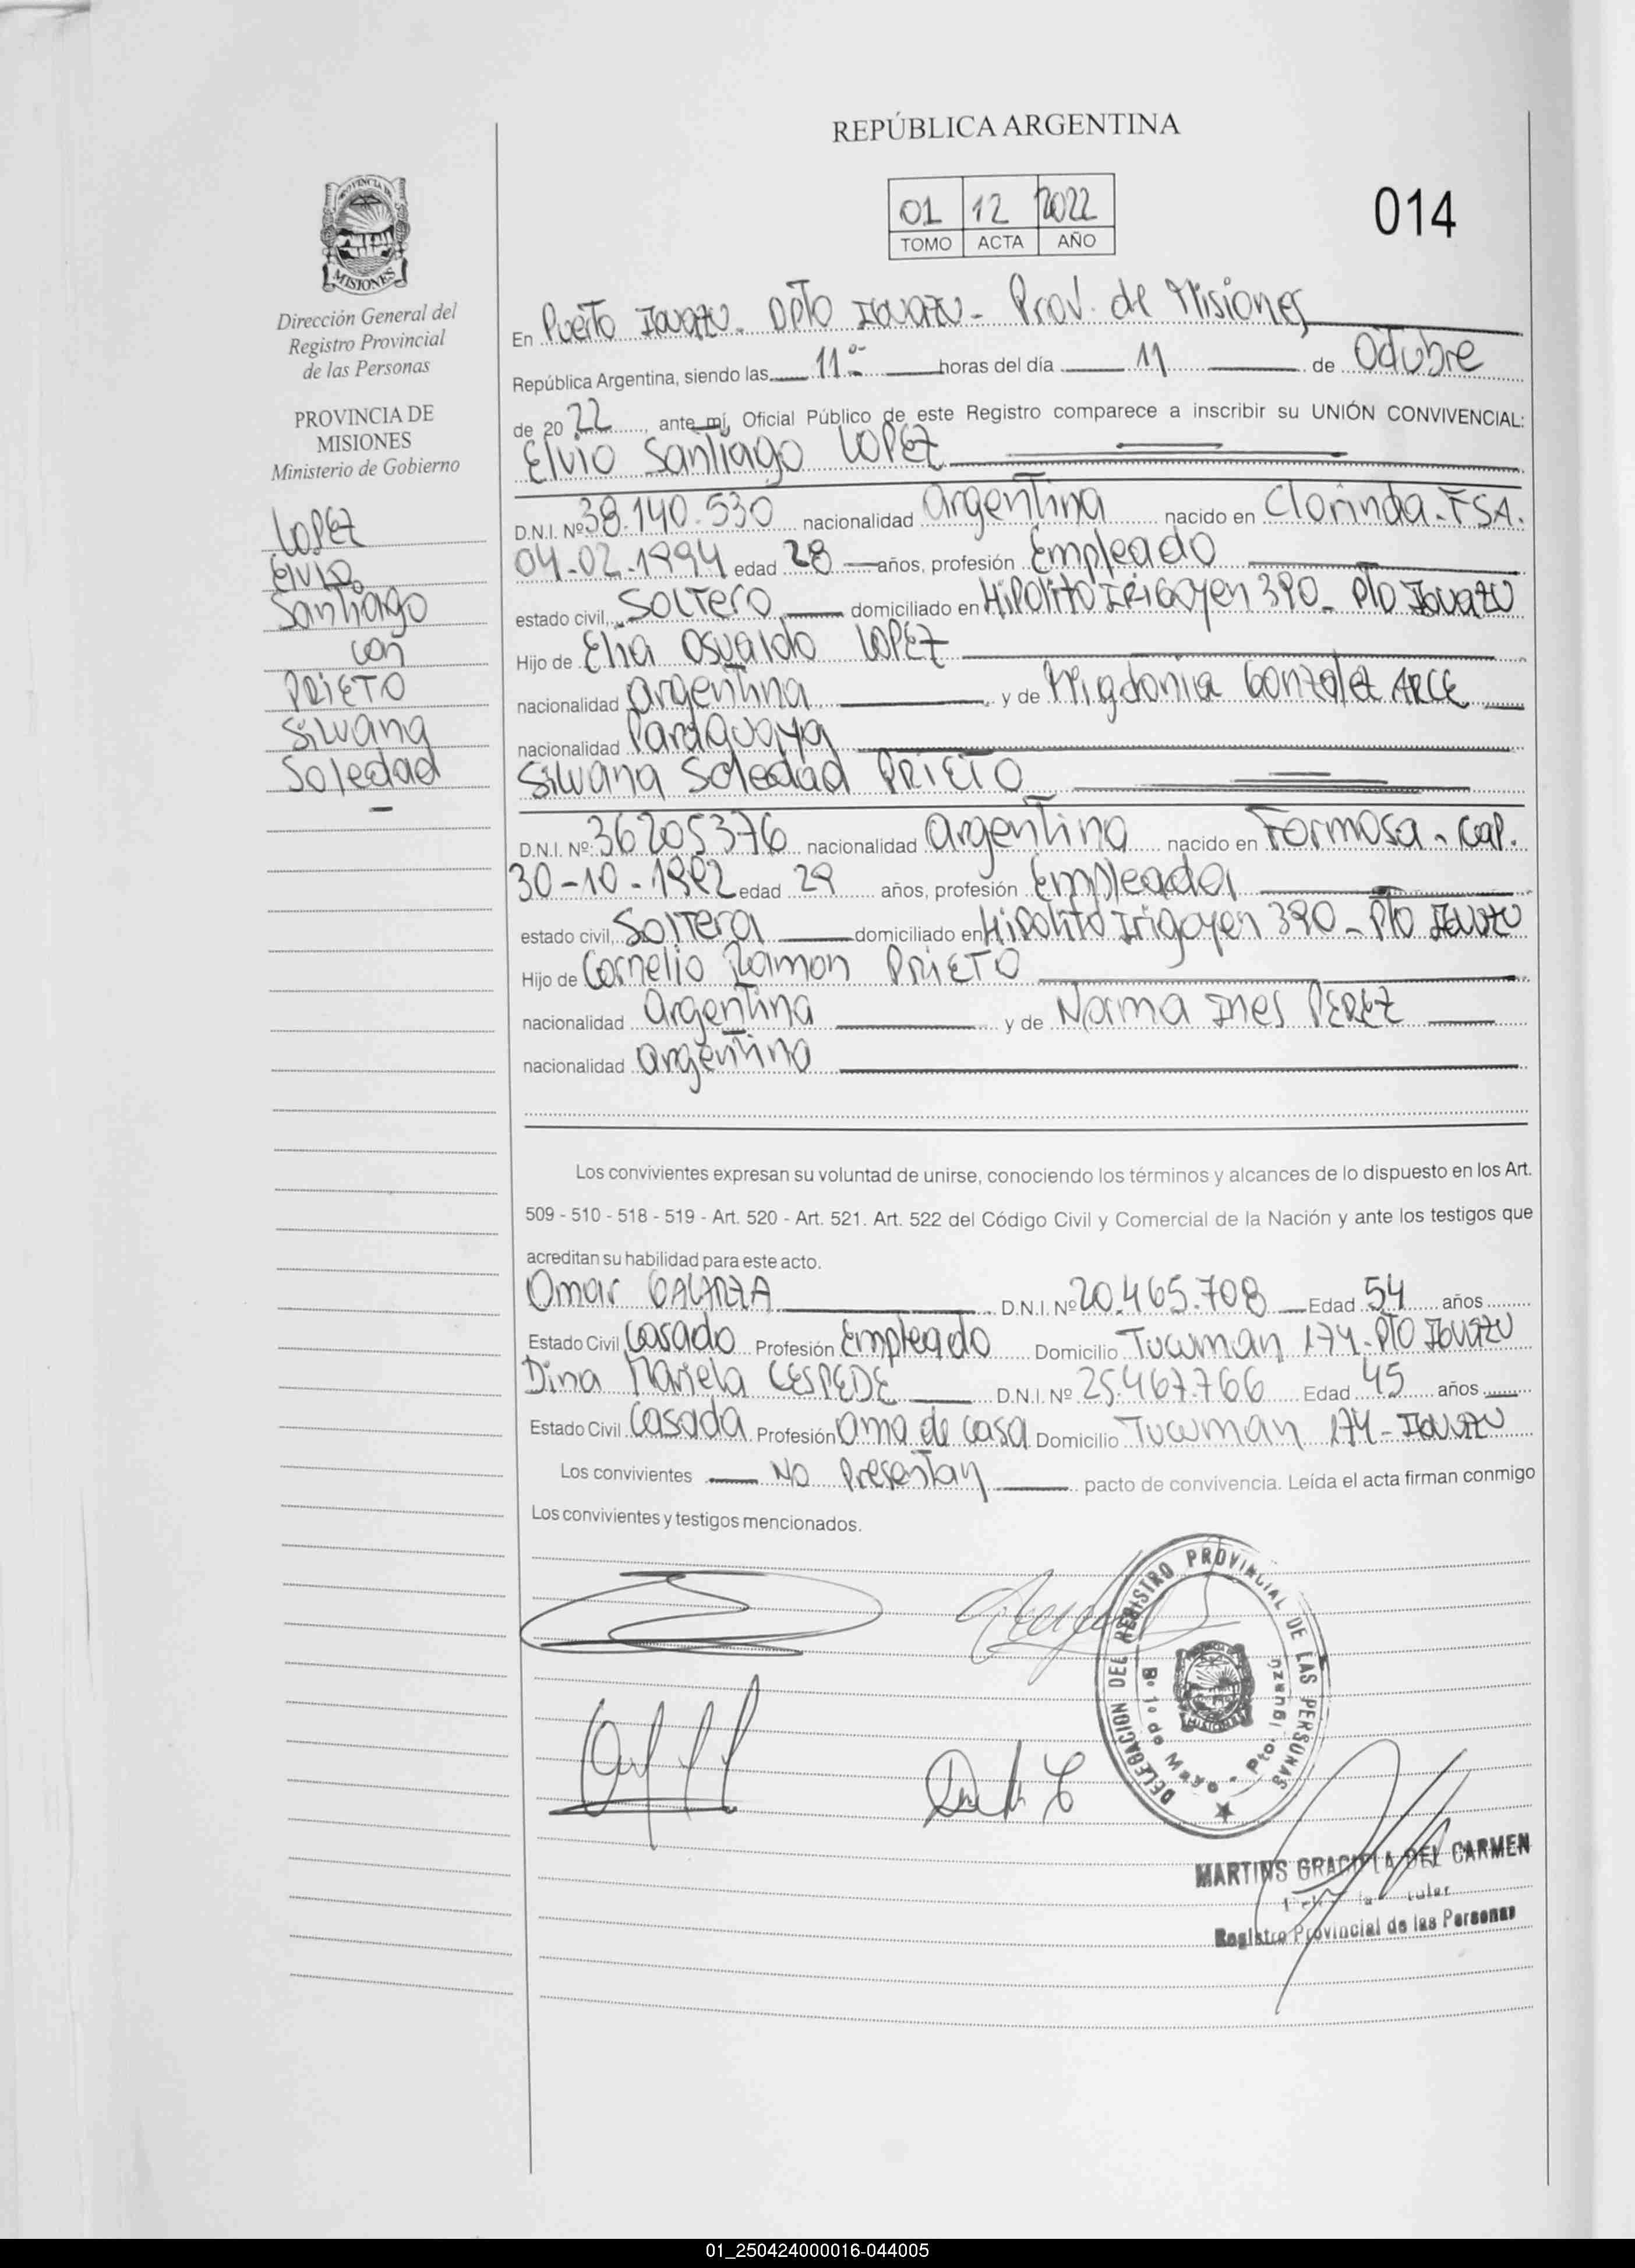 REPÚBLICA ARGENTINA
01 12 2022
TOMO ACTA AÑO
014
PROVINCIA DE
MISIONES
Dirección General del
Registro Provincial
de las Personas
PROVINCIA DE
MISIONES
Ministerio de Gobierno
LOPEZ
Elvio
Santiago
con
PRIETO
Silvana
Soledad
En Puerto Iguazu. Dpto Iguazu - Prov. de Misiones
República Argentina, siendo las 11 horas del día 11 de Octubre
de 20 22, ante mí, Oficial Público de este Registro comparece a inscribir su UNIÓN CONVIVENCIAL:
Elvio Santiago LOPEZ
D.N.I. Nº 38.140.530 nacionalidad argentina nacido en Clorinda. FSA.
04-02-1994 edad 28 años, profesión Empleado
estado civil, Soltero domiciliado en Hipolito Irigoyen 390 - Pto Iguazu
Hijo de Elia Osvaldo LOPEZ
nacionalidad argentina y de Migdonia Gonzalez ARCE
nacionalidad Paraguaya
Silvana Soledad PRIETO
D.N.I. Nº 36205376 nacionalidad argentina nacido en Formosa - Cap.
30-10-1992 edad 29 años, profesión Empleada
estado civil, Soltera domiciliado en Hipolito Irigoyen 390 - Pto Iguazu
Hijo de Cornelio Ramon PRIETO
nacionalidad Argentina y de Norma Ines PEREZ
nacionalidad argentina
Los convivientes expresan su voluntad de unirse, conociendo los términos y alcances de lo dispuesto en los Art.
509 - 510 - 518 - 519 - Art. 520 - Art. 521. Art. 522 del Código Civil y Comercial de la Nación y ante los testigos que
acreditan su habilidad para este acto.
Omar GALARZA D.N.I. Nº 20.465.708 Edad 54 años
Estado Civil Casado Profesión Empleado Domicilio Tucuman 174 - Pto Iguazu
Dina Mariela CESPEDE D.N.I. Nº 25.467.766 Edad 45 años
Estado Civil Casada Profesión Ama de casa Domicilio Tucuman 174 - Iguazu
Los convivientes No Presentan pacto de convivencia. Leída el acta firman conmigo
Los convivientes y testigos mencionados.
DELEGACION DEL REGISTRO PROVINCIAL DE LAS PERSONAS
Bº 1º de Mayo - Pto. Iguazú
MARTINS GRACIELA DEL CARMEN
Registro Provincial de las Personas
01_250424000016-044005